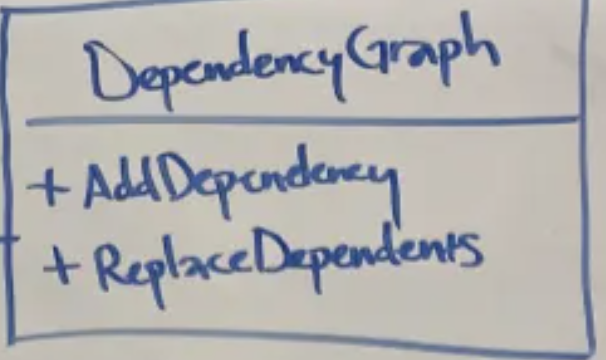 DependencyGraph
+ AddDependency
+ ReplaceDependents